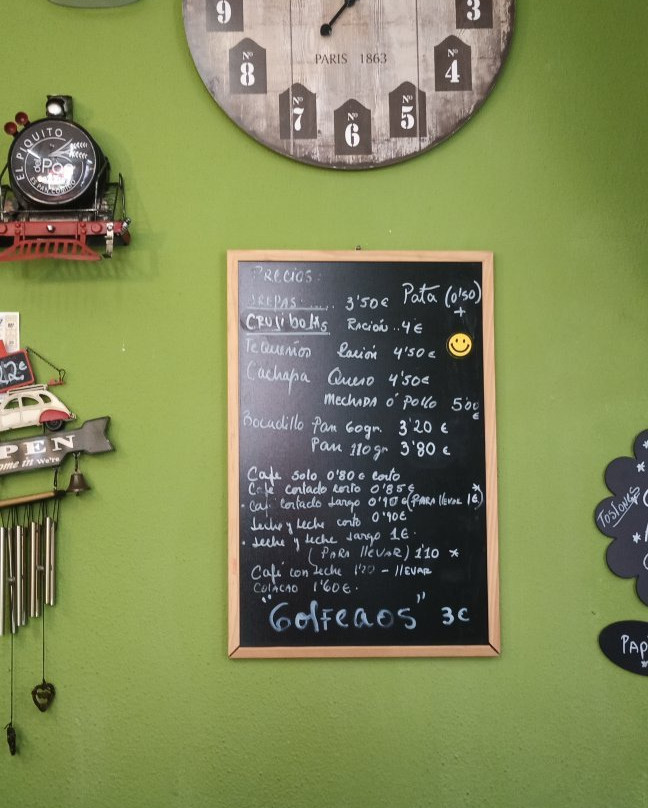 9
3
PARIS 1863
Nº 8
Nº 4
Nº 7
Nº 5
Nº 6
EL PIQUITO
del Pan
EL PAN COBIDO
PRECIOS:
AREPAS...... 3'50€ Pata (0'50)
+
CRUJIbolas Ración..4€
Tequeños Ración 4'50€
Cachapa Queso 4'50€
MECHADA ó Pollo 5'00€
Bocadillo Pan 60gr. 3'20 €
Pan 110gr 3'80 €
Cafe solo 0'80€ corto
Cafe cortado corto 0'85€ *
· Caf cortado largo 0'90€ (PARA llEVAR 1€)
leche y leche corto 0'90€
· leche y leche largo 1€.
(PARA llEVAR) 1'10 *
Café con leche 1'20 - llEVAR
COlACAO 1'60€.
"Golfeaos" 3€
2€
PEN
ome in We're
TOSTONES
PAP